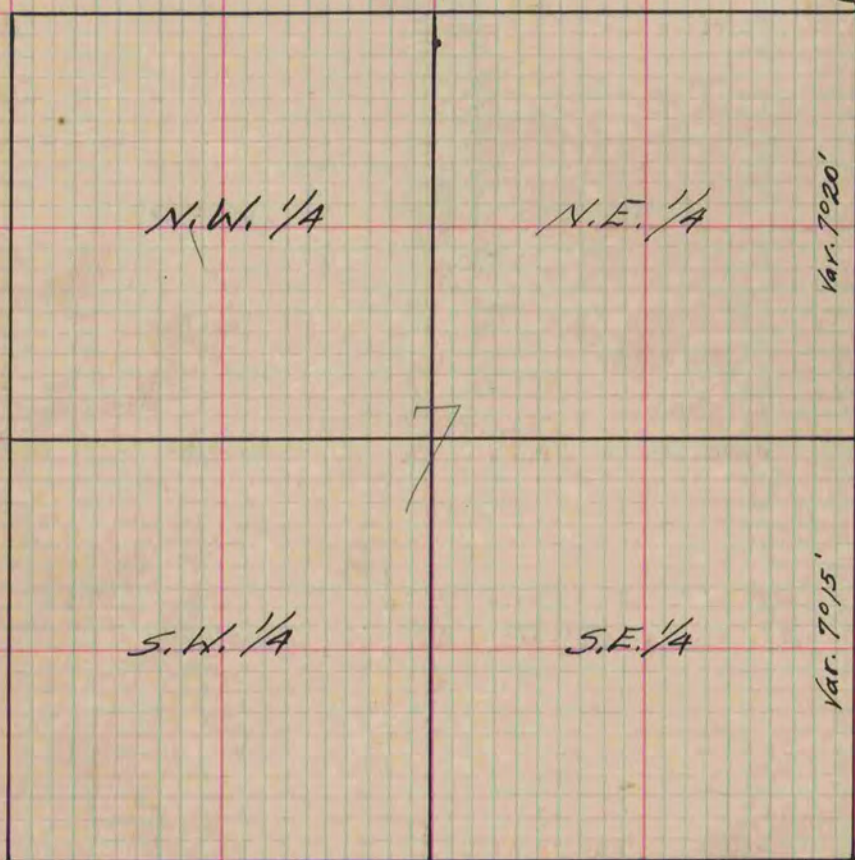 N.W. 1/4
N.E. 1/4
Var. 7°20'
7
S.W. 1/4
S.E. 1/4
Var. 7°15'